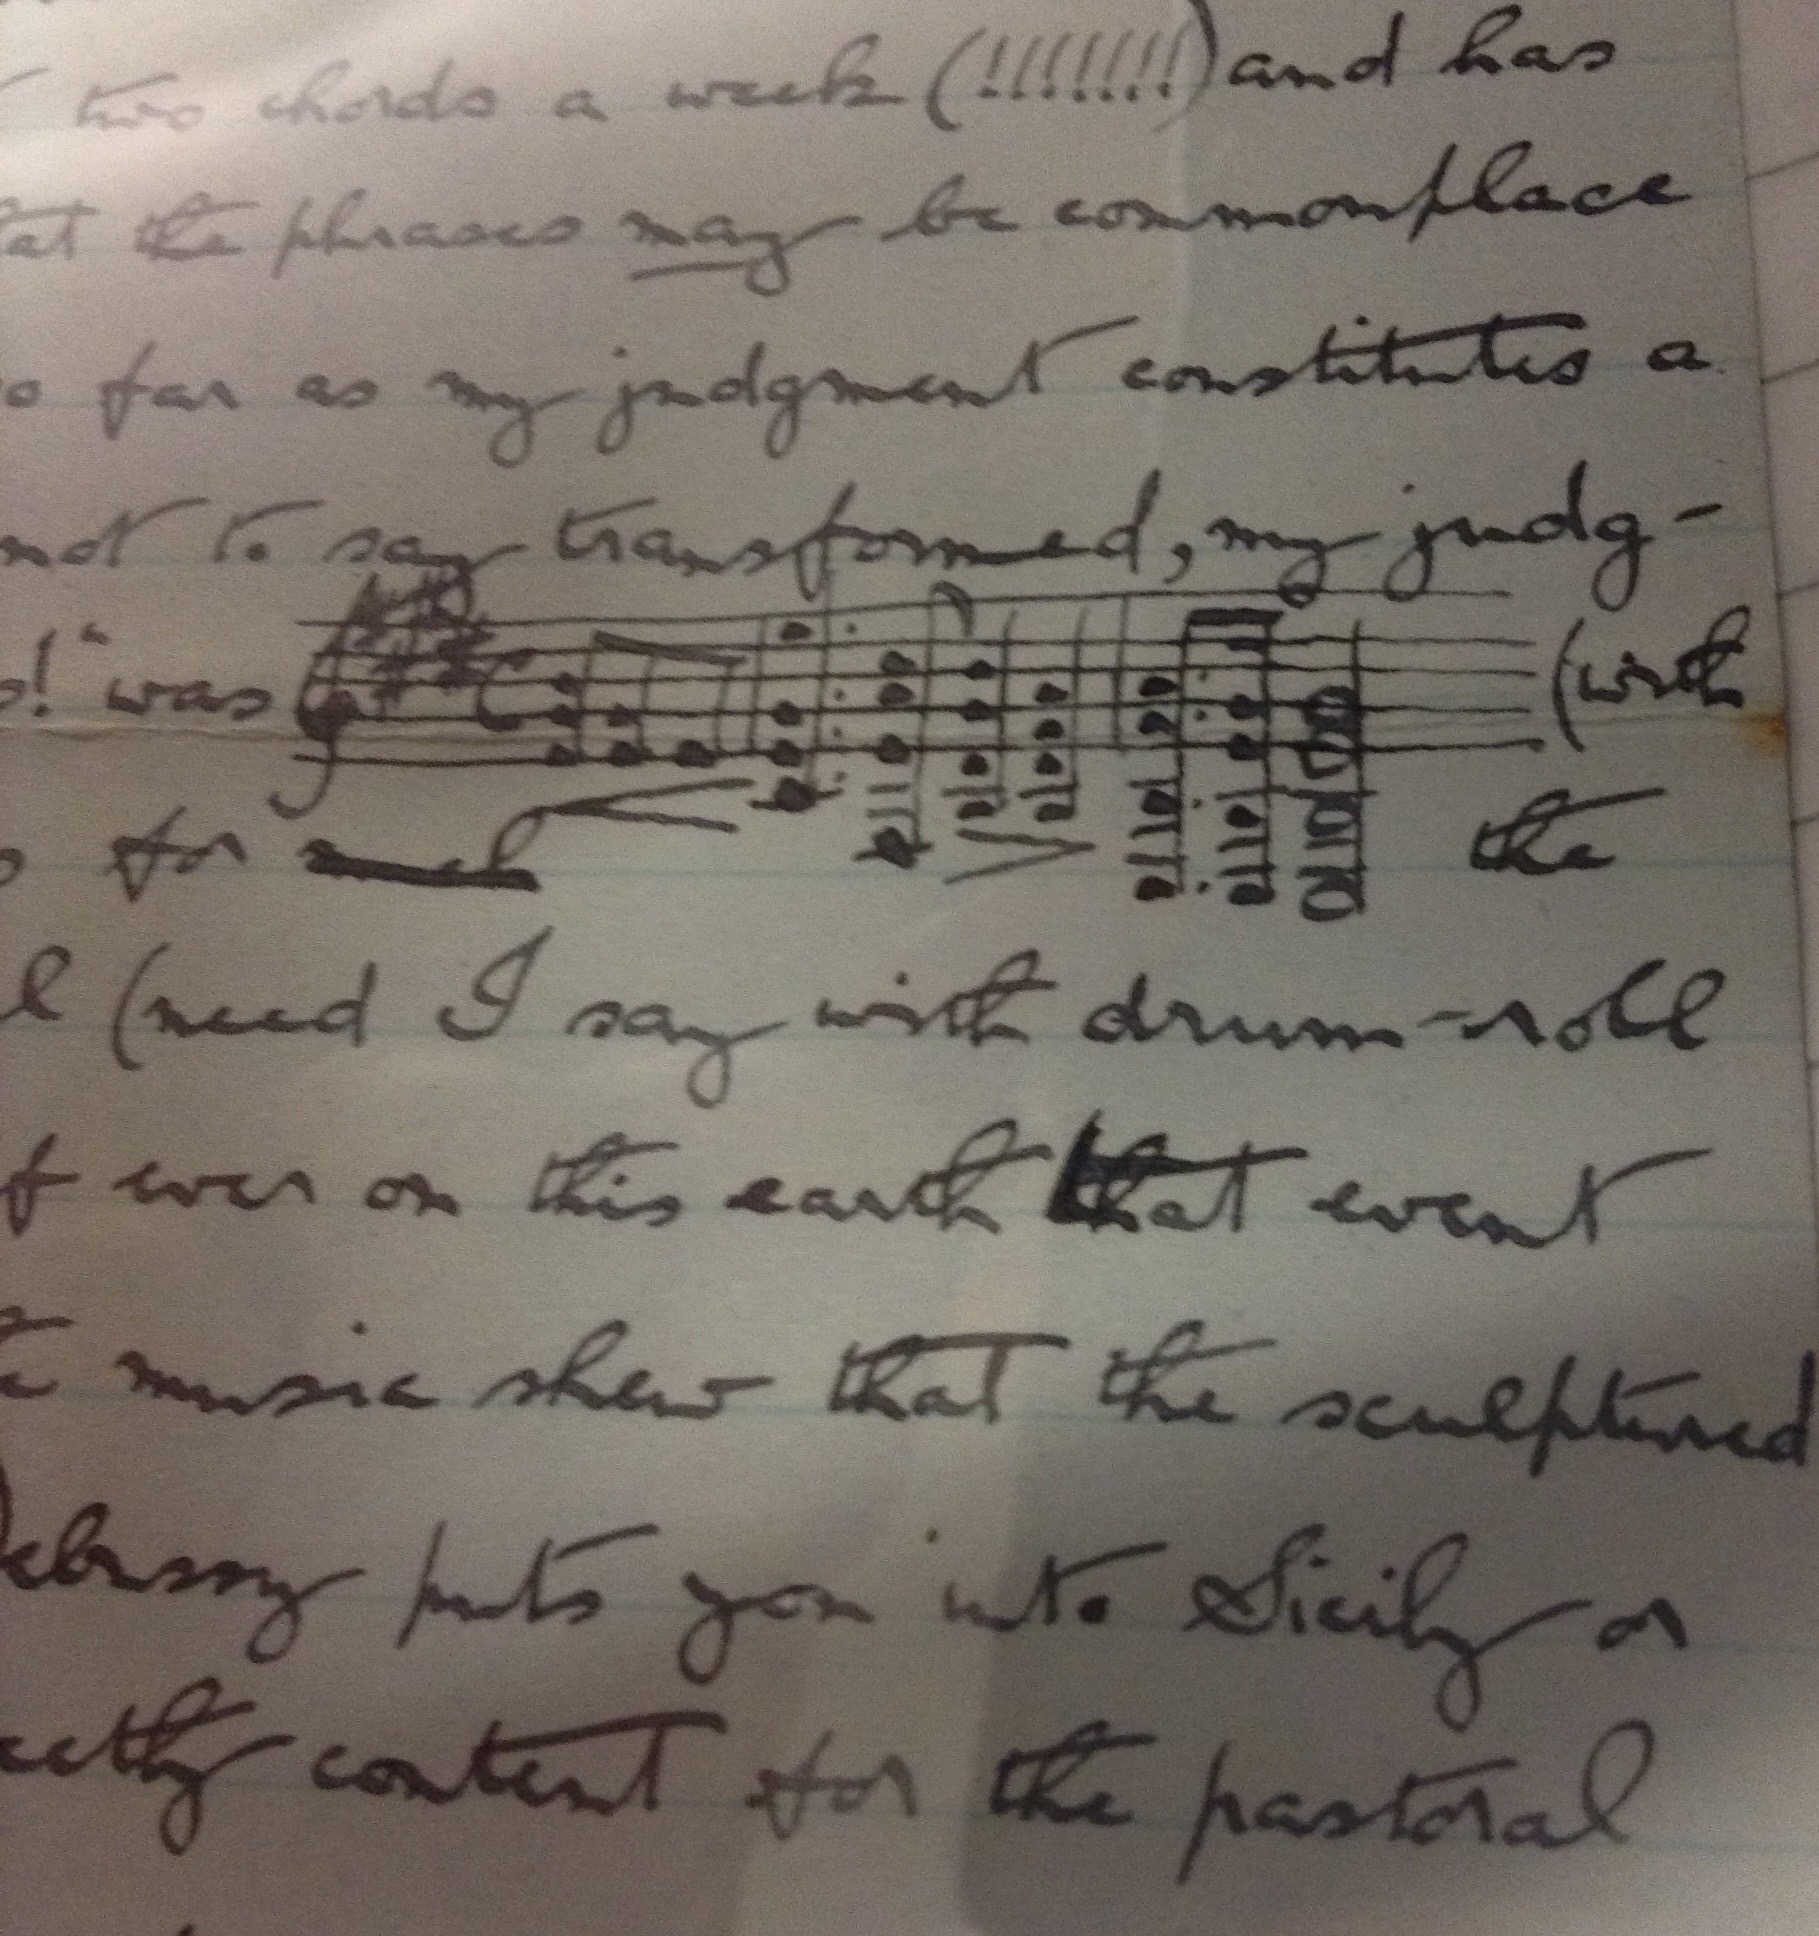 two chords a week (!!!!!!!!) and has
the phrases may be commonplace
far as my judgment constitutes a
not to say transformed, my judg-
! " was (with
for the
(need I say with drum-roll
ever on this earth that event
music shew that the sculptured
Debussy puts you into Sicily or
content for the pastoral